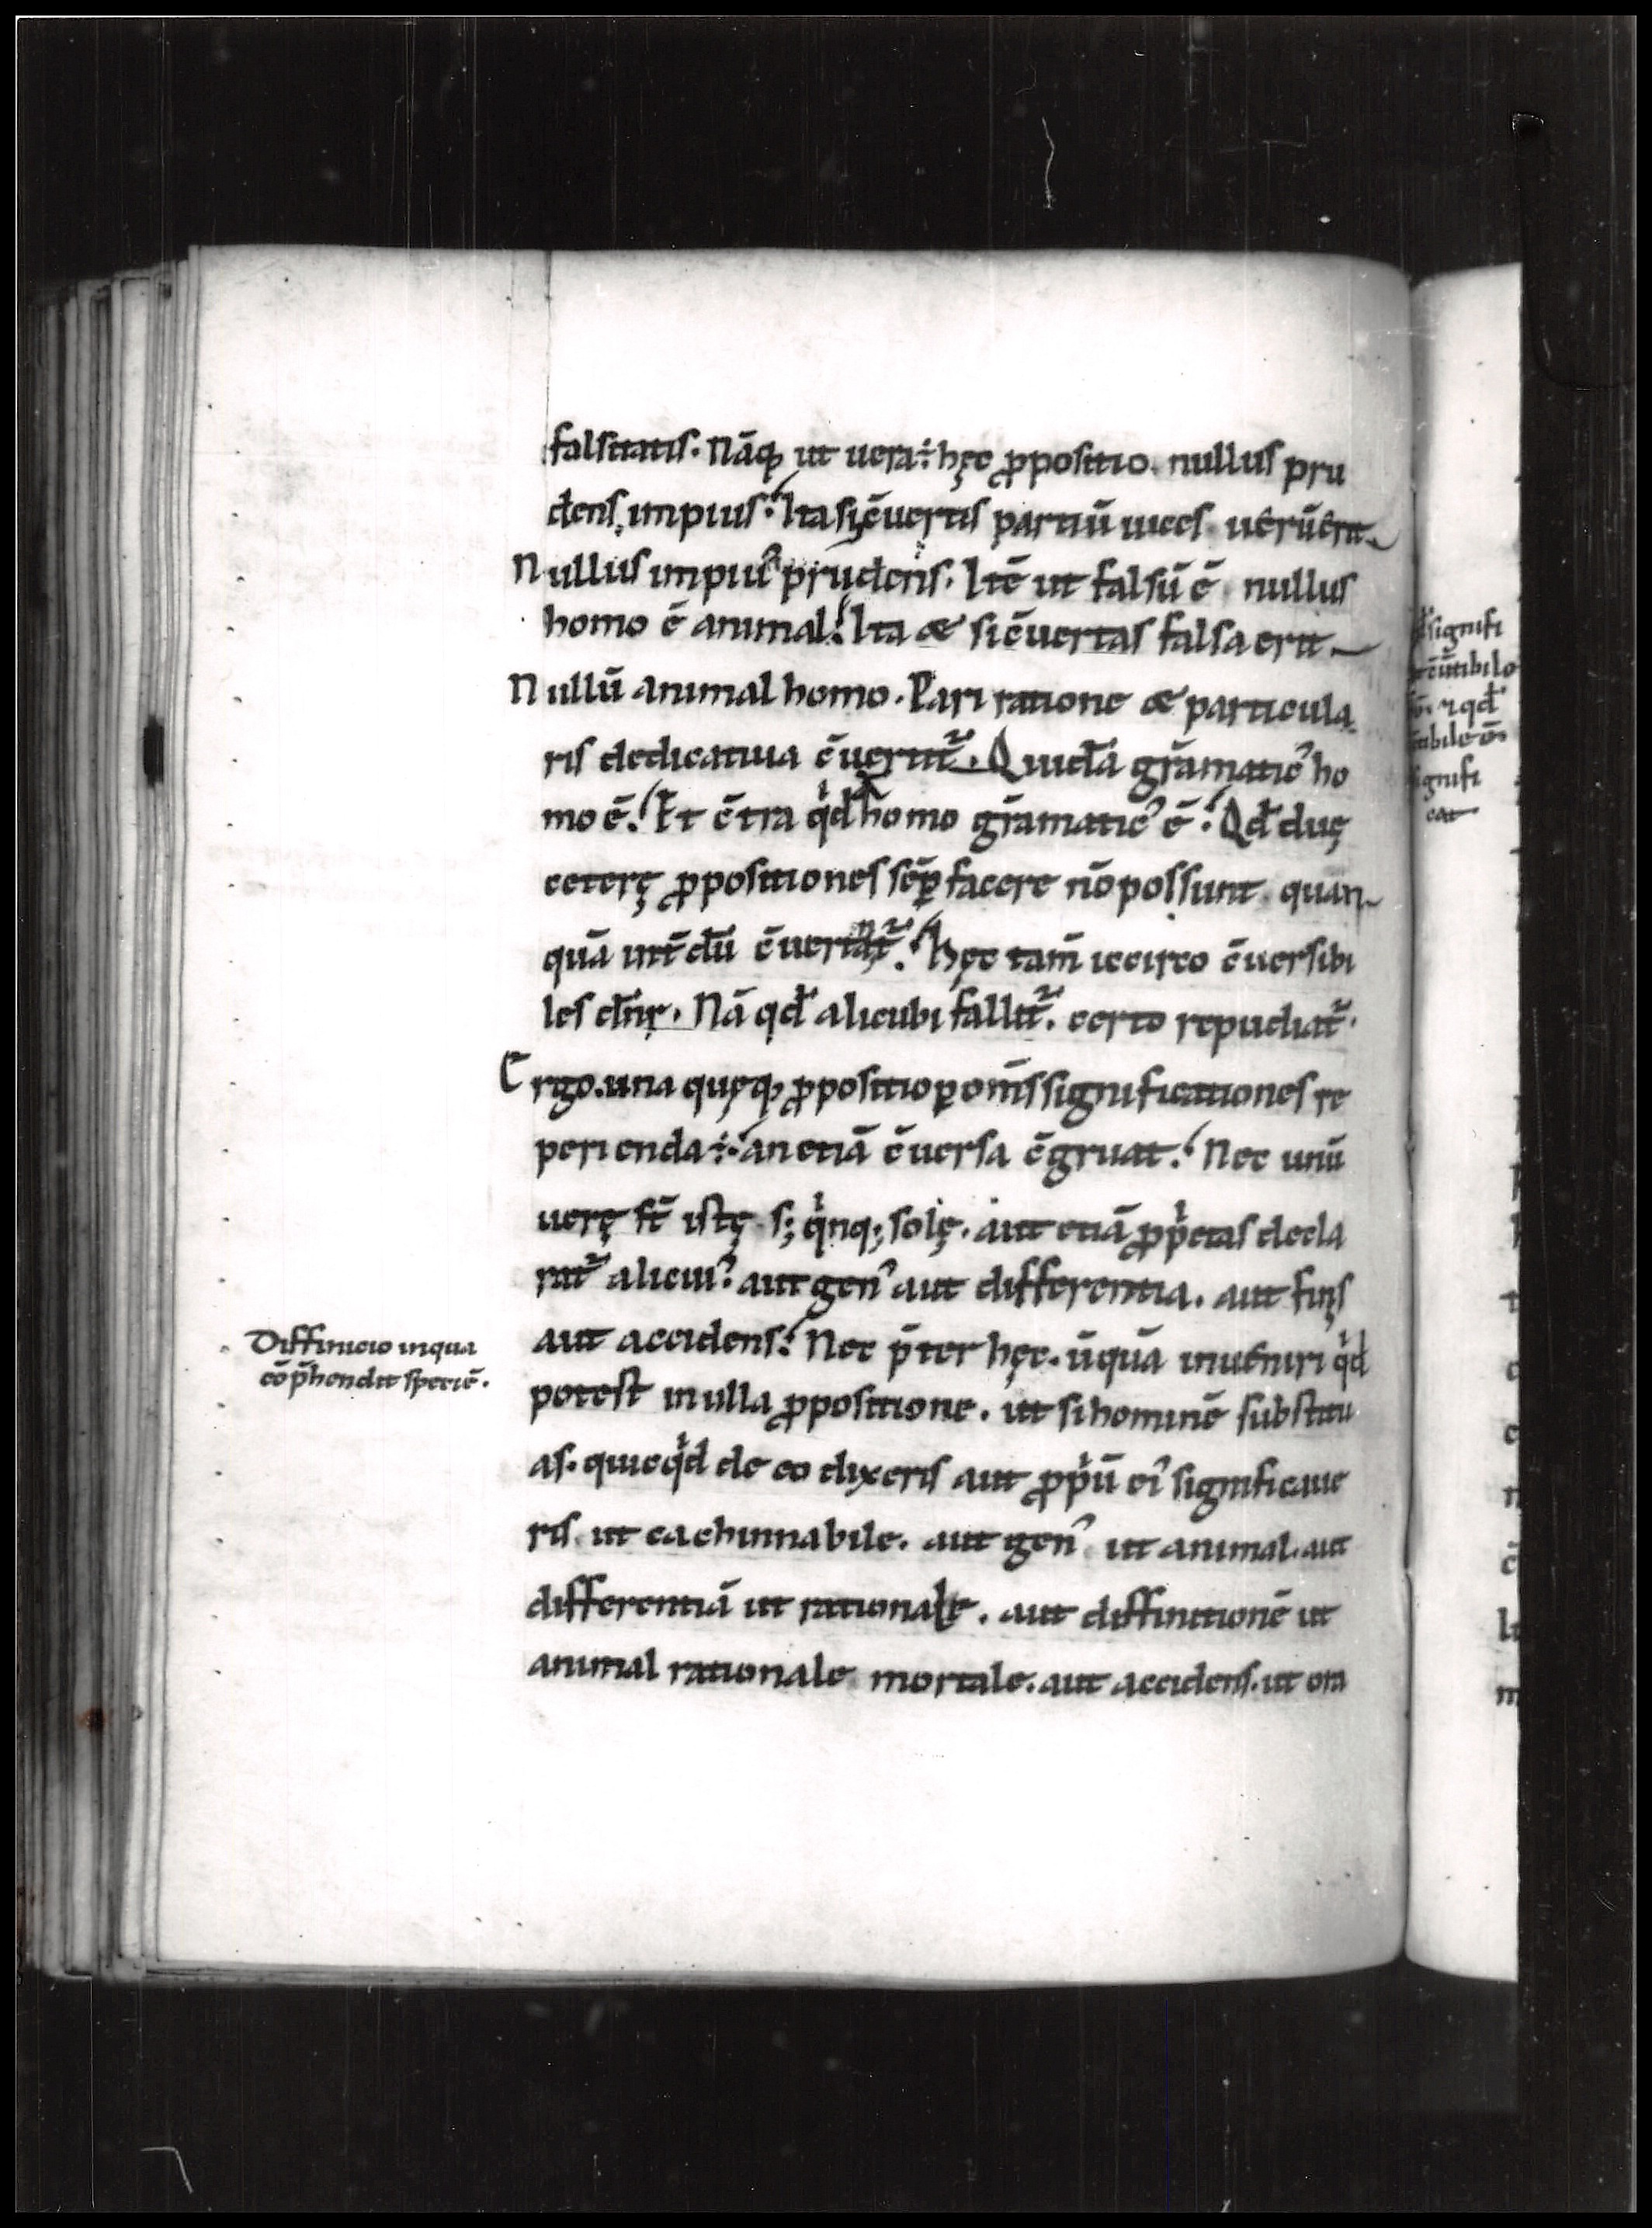 falsitatis. Nāq; ut uera ÷ hęc ꝓpositio. nullus pru
dens impius. Ita si c̄uertis partiū uices uerū erit
Nullus impiꝰ prudens. Itē ut falsū ē nullus
homo ē animal. Ita & si c̄uertas falsa erit
Nullū animal homo. Pari ratione & particula
ris dedicatiua c̄uertit᷑. Quidā grāmaticꝰ ho
mo ē. Et c̄tra qͥdā homo grāmaticꝰ ē. Qd̄ duę
ceterę ꝓpositiones sēꝑ facere nō possunt quan
quā int̄dū c̄uertant᷑. hęc tam̄ iccirco c̄uersibi
les dn̄r. Nā qd̄ alicubi fallit᷑. certo repudiat᷑.
Ergo. una quęq; ꝓpositio ꝑ om̄s significationes re
perienda ÷ an etiā c̄uersa c̄gruat. Nec unū
uerę st̄ istę s; qͥnq; solę. aut etiā ꝓpͥetas decla
rat᷑ alicuiꝰ. aut genꝰ aut differentia. aut finis
aut accidens. Nec p̄ter hęc. ūquā inueniri qͥd
potest in ulla ꝓpositione. ut si hominē substitu
as. quicqͥd de eo dixeris aut ꝓpͥū eiꝰ significaue
ris ut cachinnabile. aut genꝰ ut animal. aut
differentiā ut rationale. aut diffinitionē ut
animal rationale mortale. aut accidens. ut ora
Diffinicio in qua
cōp̄hendit speciē.
signifi
qd̄
signifi
cat